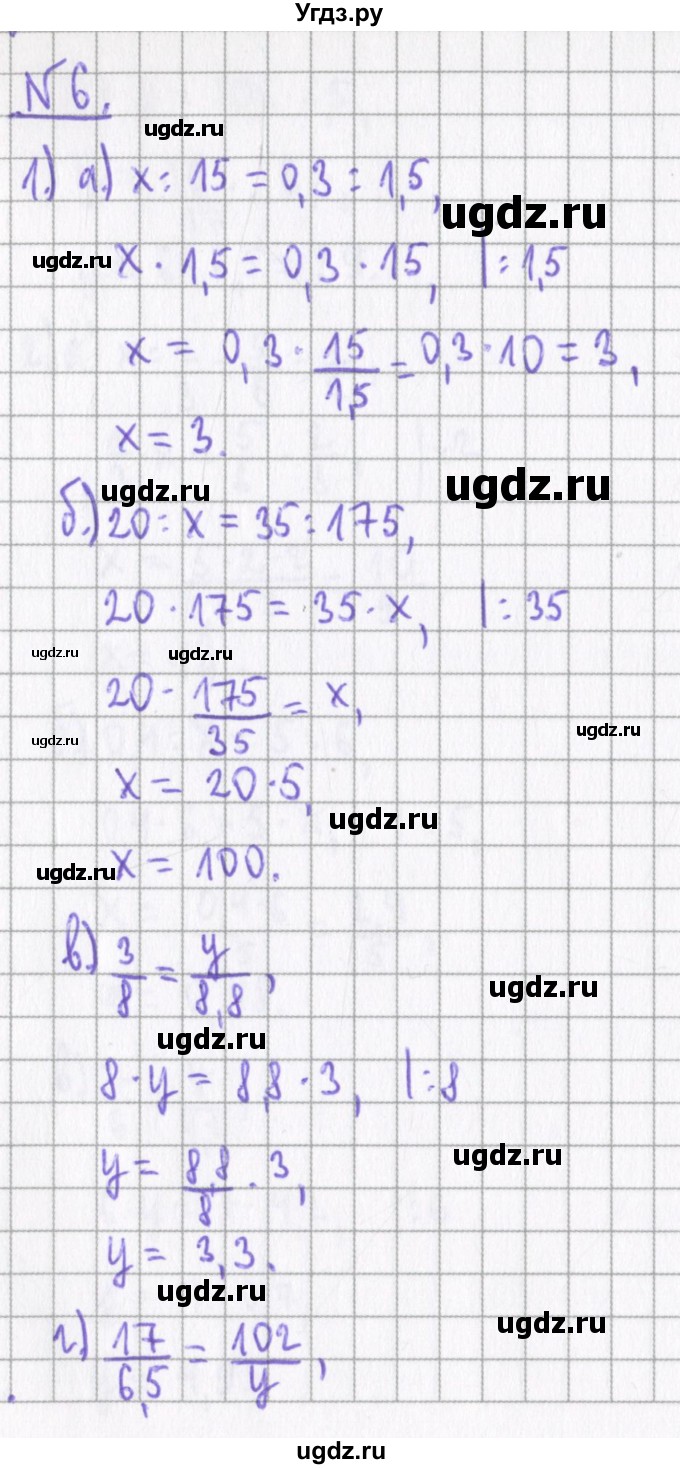 Угдз.ру
№6.
ugdz.ru
1.) а.) x : 15 = 0,3 : 1,5,
ugdz.ru
ugdz.ru x · 1,5 = 0,3 · 15, | : 1,5
x = 0,3 · 15/1,5 = 0,3 · 10 = 3,
x = 3.
ugdz.ru
ugdz.ru
б.) 20 : x = 35 : 175,
20 · 175 = 35 · x, | : 35
ugdz.ru ugdz.ru
20 · 175/35 = x,
ugdz.ru
ugdz.ru
x = 20 · 5,
ugdz.ru
ugdz.ru x = 100.
в.) 3/8 = y/8,8,
ugdz.ru
ugdz.ru
8 · y = 8,8 · 3, | : 8
ugdz.ru
y = 8,8/8 · 3,
y = 3,3.
ugdz.ru
ugdz.ru
г.) 17/6,5 = 102/y,
ugdz.ru